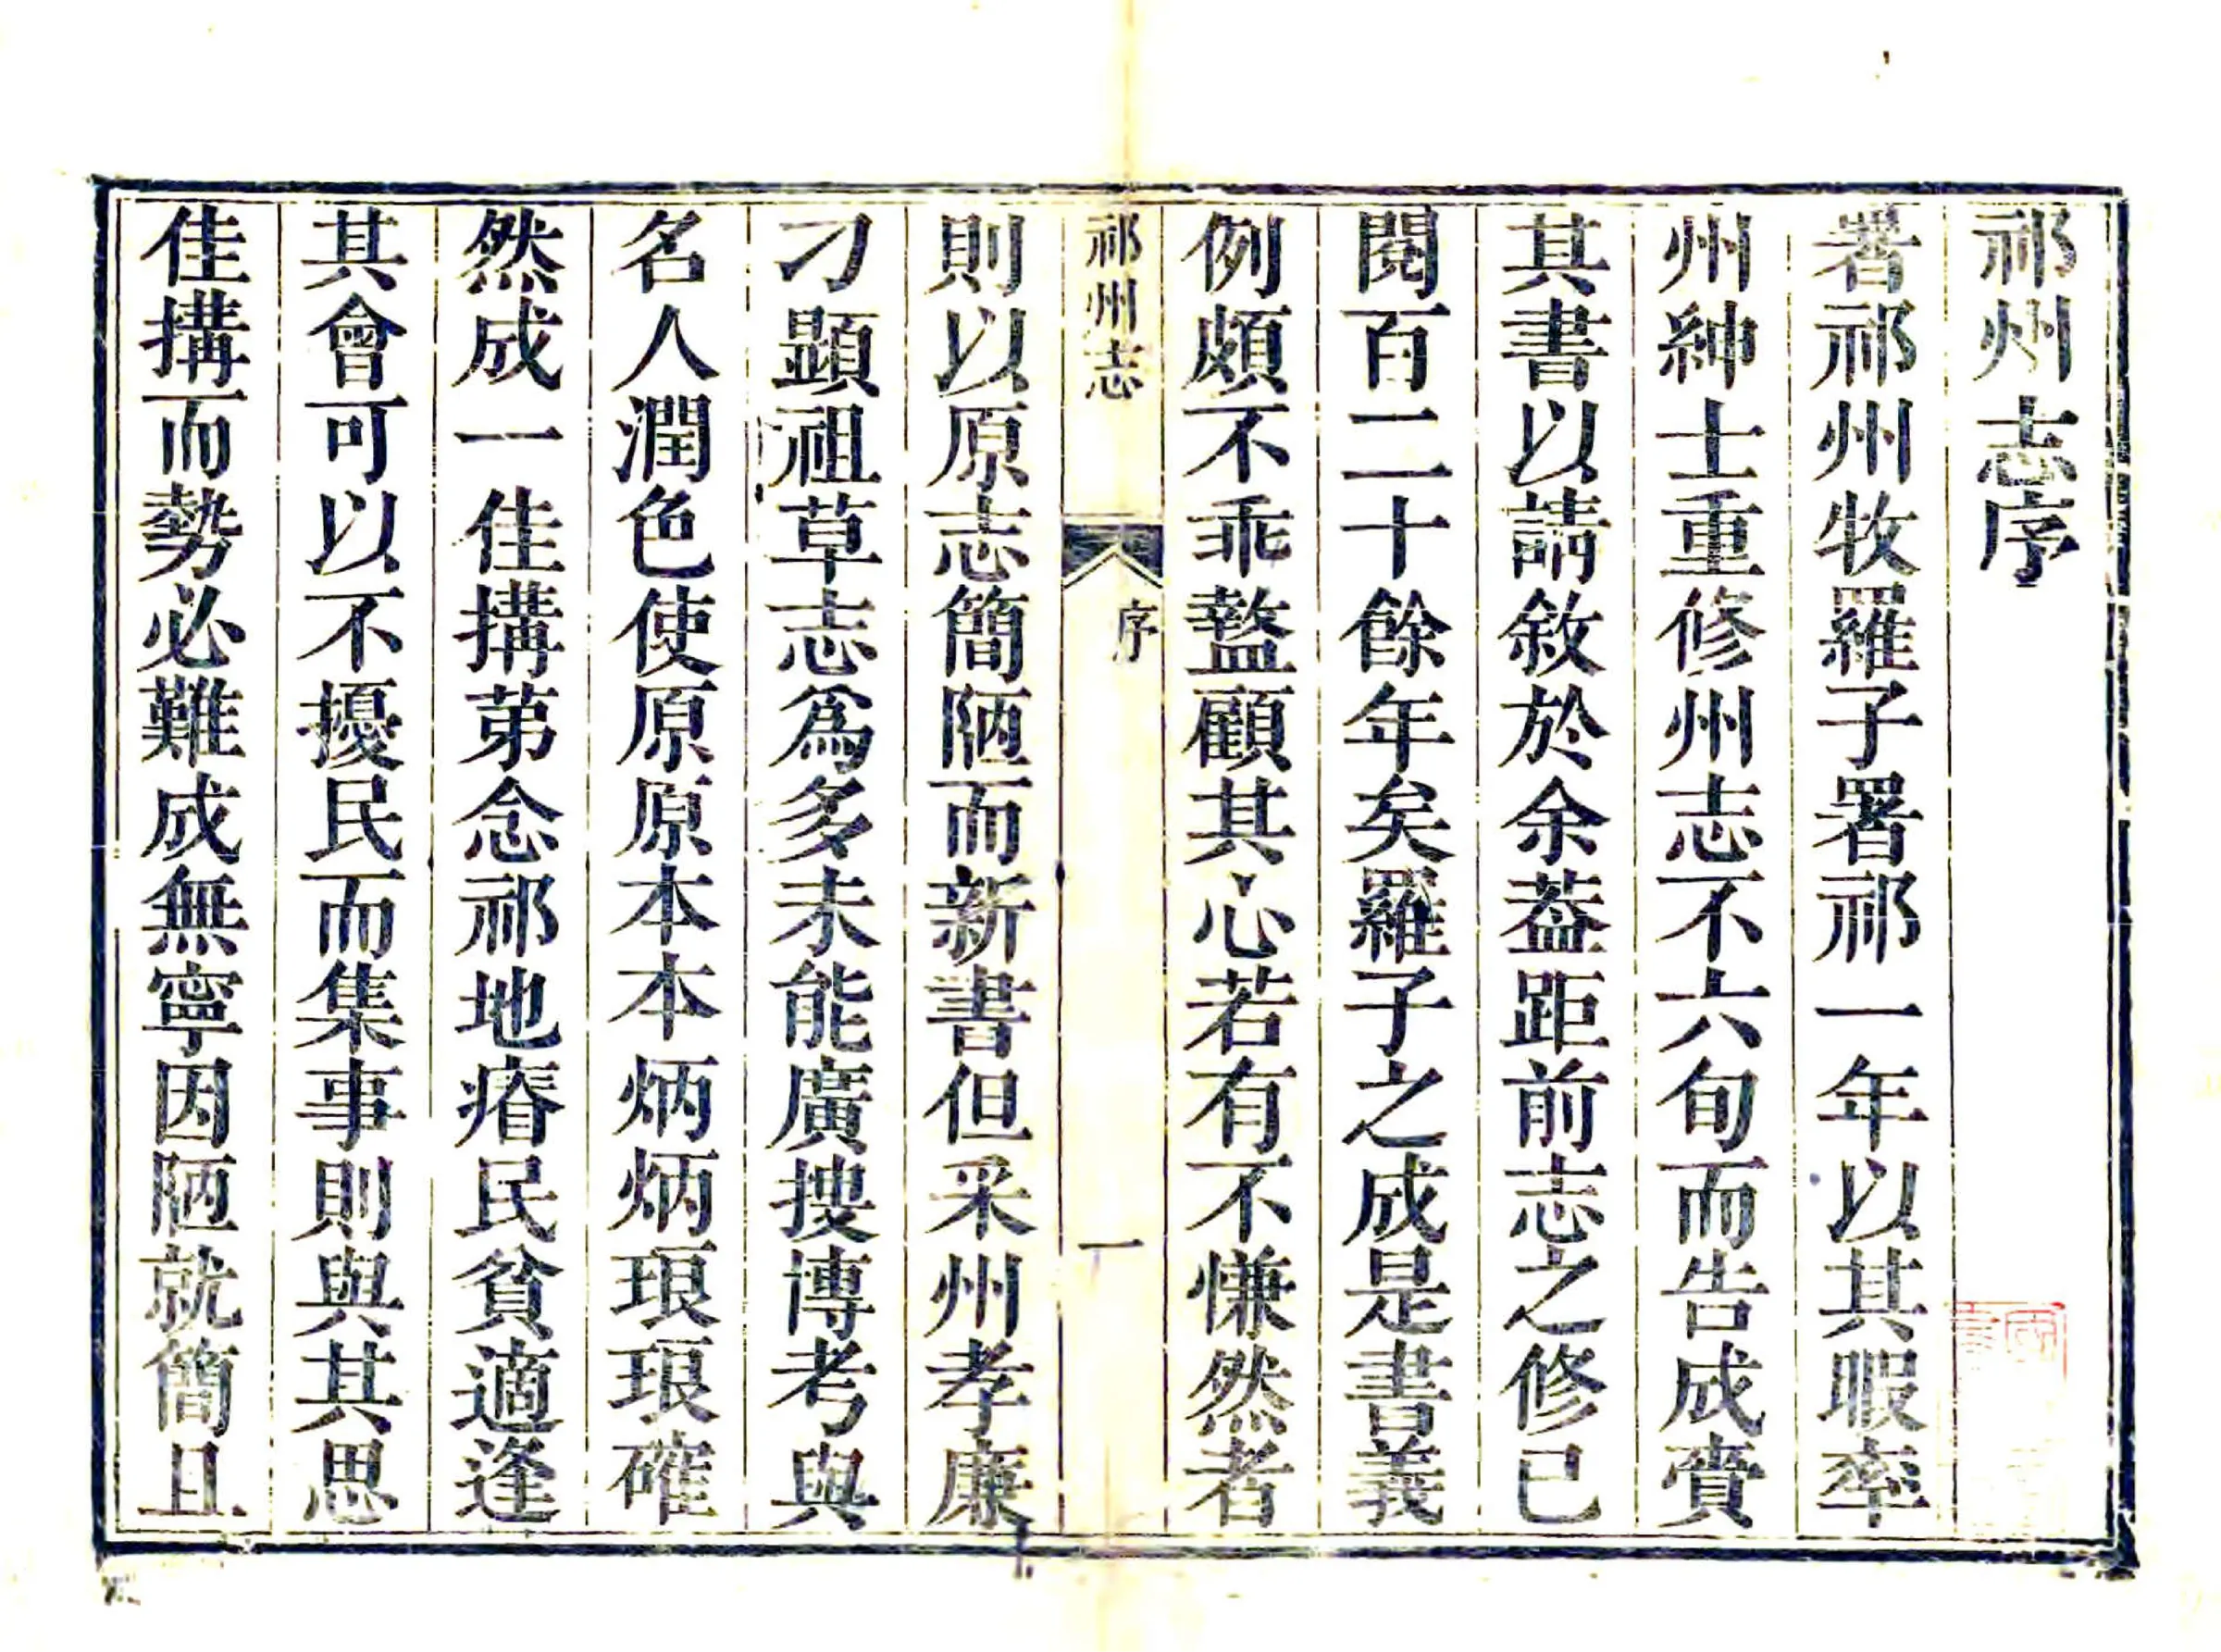 祁州志序
署祁州牧羅子署祁一年以其暇率
州紳士重修州志不六旬而告成賷
其書以請敘於余葢距前志之修已
閱百二十餘年矣羅子之成是書義
例頗不乖盭顧其心若有不慊然者
祁州志
序
一
則以原志簡陋而新書但采州孝廉
刁顯祖草志爲多未能廣搜博考與
名人潤色使原原本本炳炳琅琅確
然成一佳搆苐念祁地瘠民貧適逢
其會可以不擾民而集事則與其思
佳搆而勢必難成無寧因陋就簡且